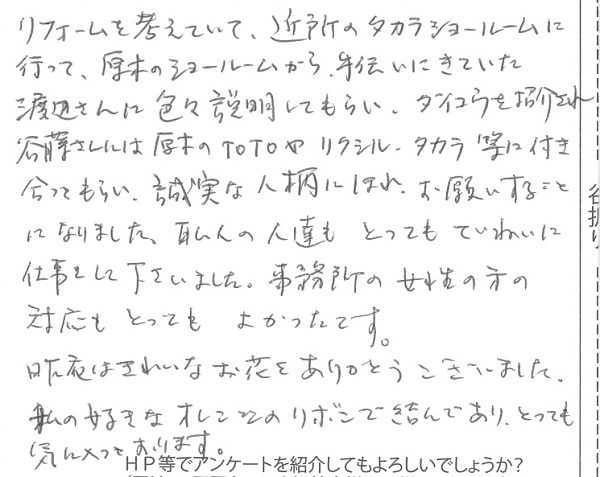 リフォームを考えていて、近所のタカラショールームに
行って、厚木のショールームから、手伝いにきていた
渡辺さんに色々説明してもらい、ダイコウを紹介され
谷藤さんには厚木のTOTOやリクシル、タカラ等に付き
合ってもらい、誠実な人柄にほれ、お願いすること
になりました。職人の人達もとってもていねいに
仕事をして下さいました。事務所の女性の方の
対応もとってもよかったです。
昨夜はきれいなお花をありがとうございました。
私の好きなオレンジのリボンで結んであり、とっても
気に入っております。
HP等でアンケートを紹介してもよろしいでしょうか?